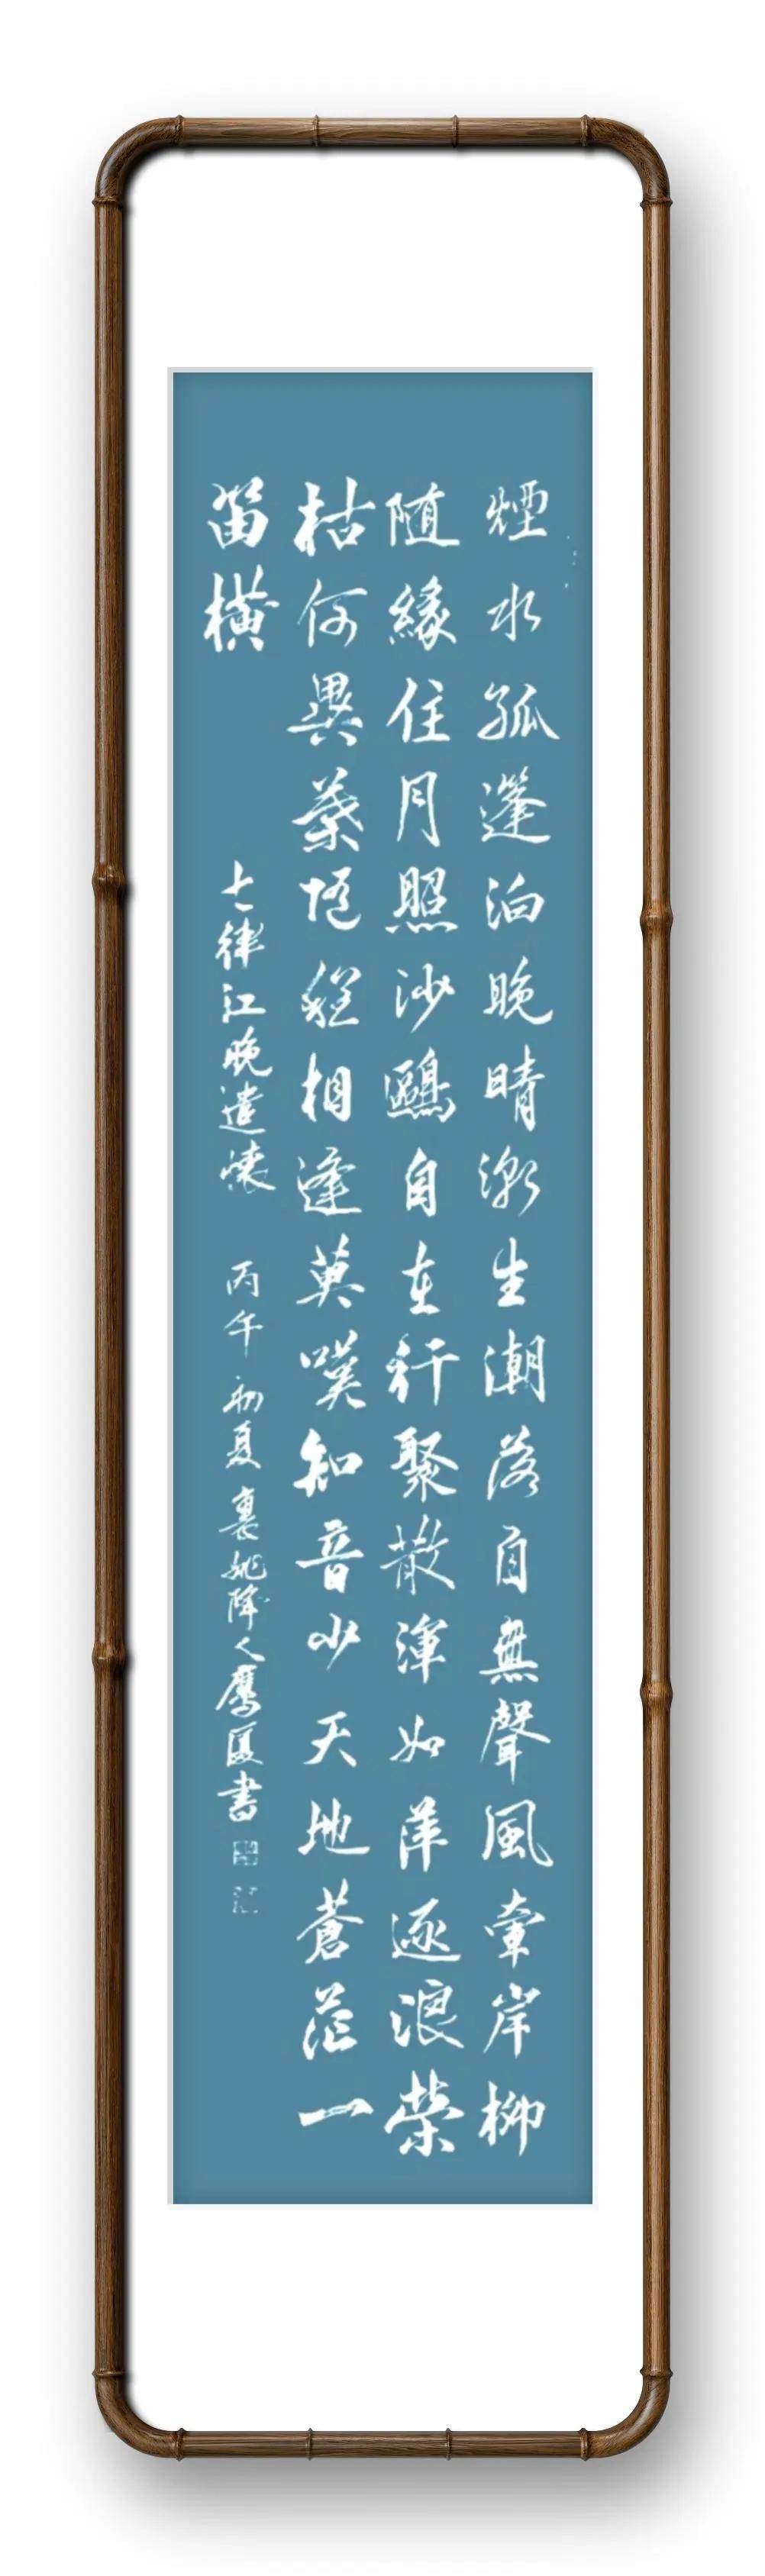 煙水孤篷泊晚晴漸生潮落自無聲風牽岸柳
隨緣住月照沙鷗自在行聚散渾如萍逐浪榮
枯何異葉隨程相逢莫嘆知音少天地蒼茫一
笛橫
七律江晚遣懷
丙午初夏裏姚降人鷹廈書